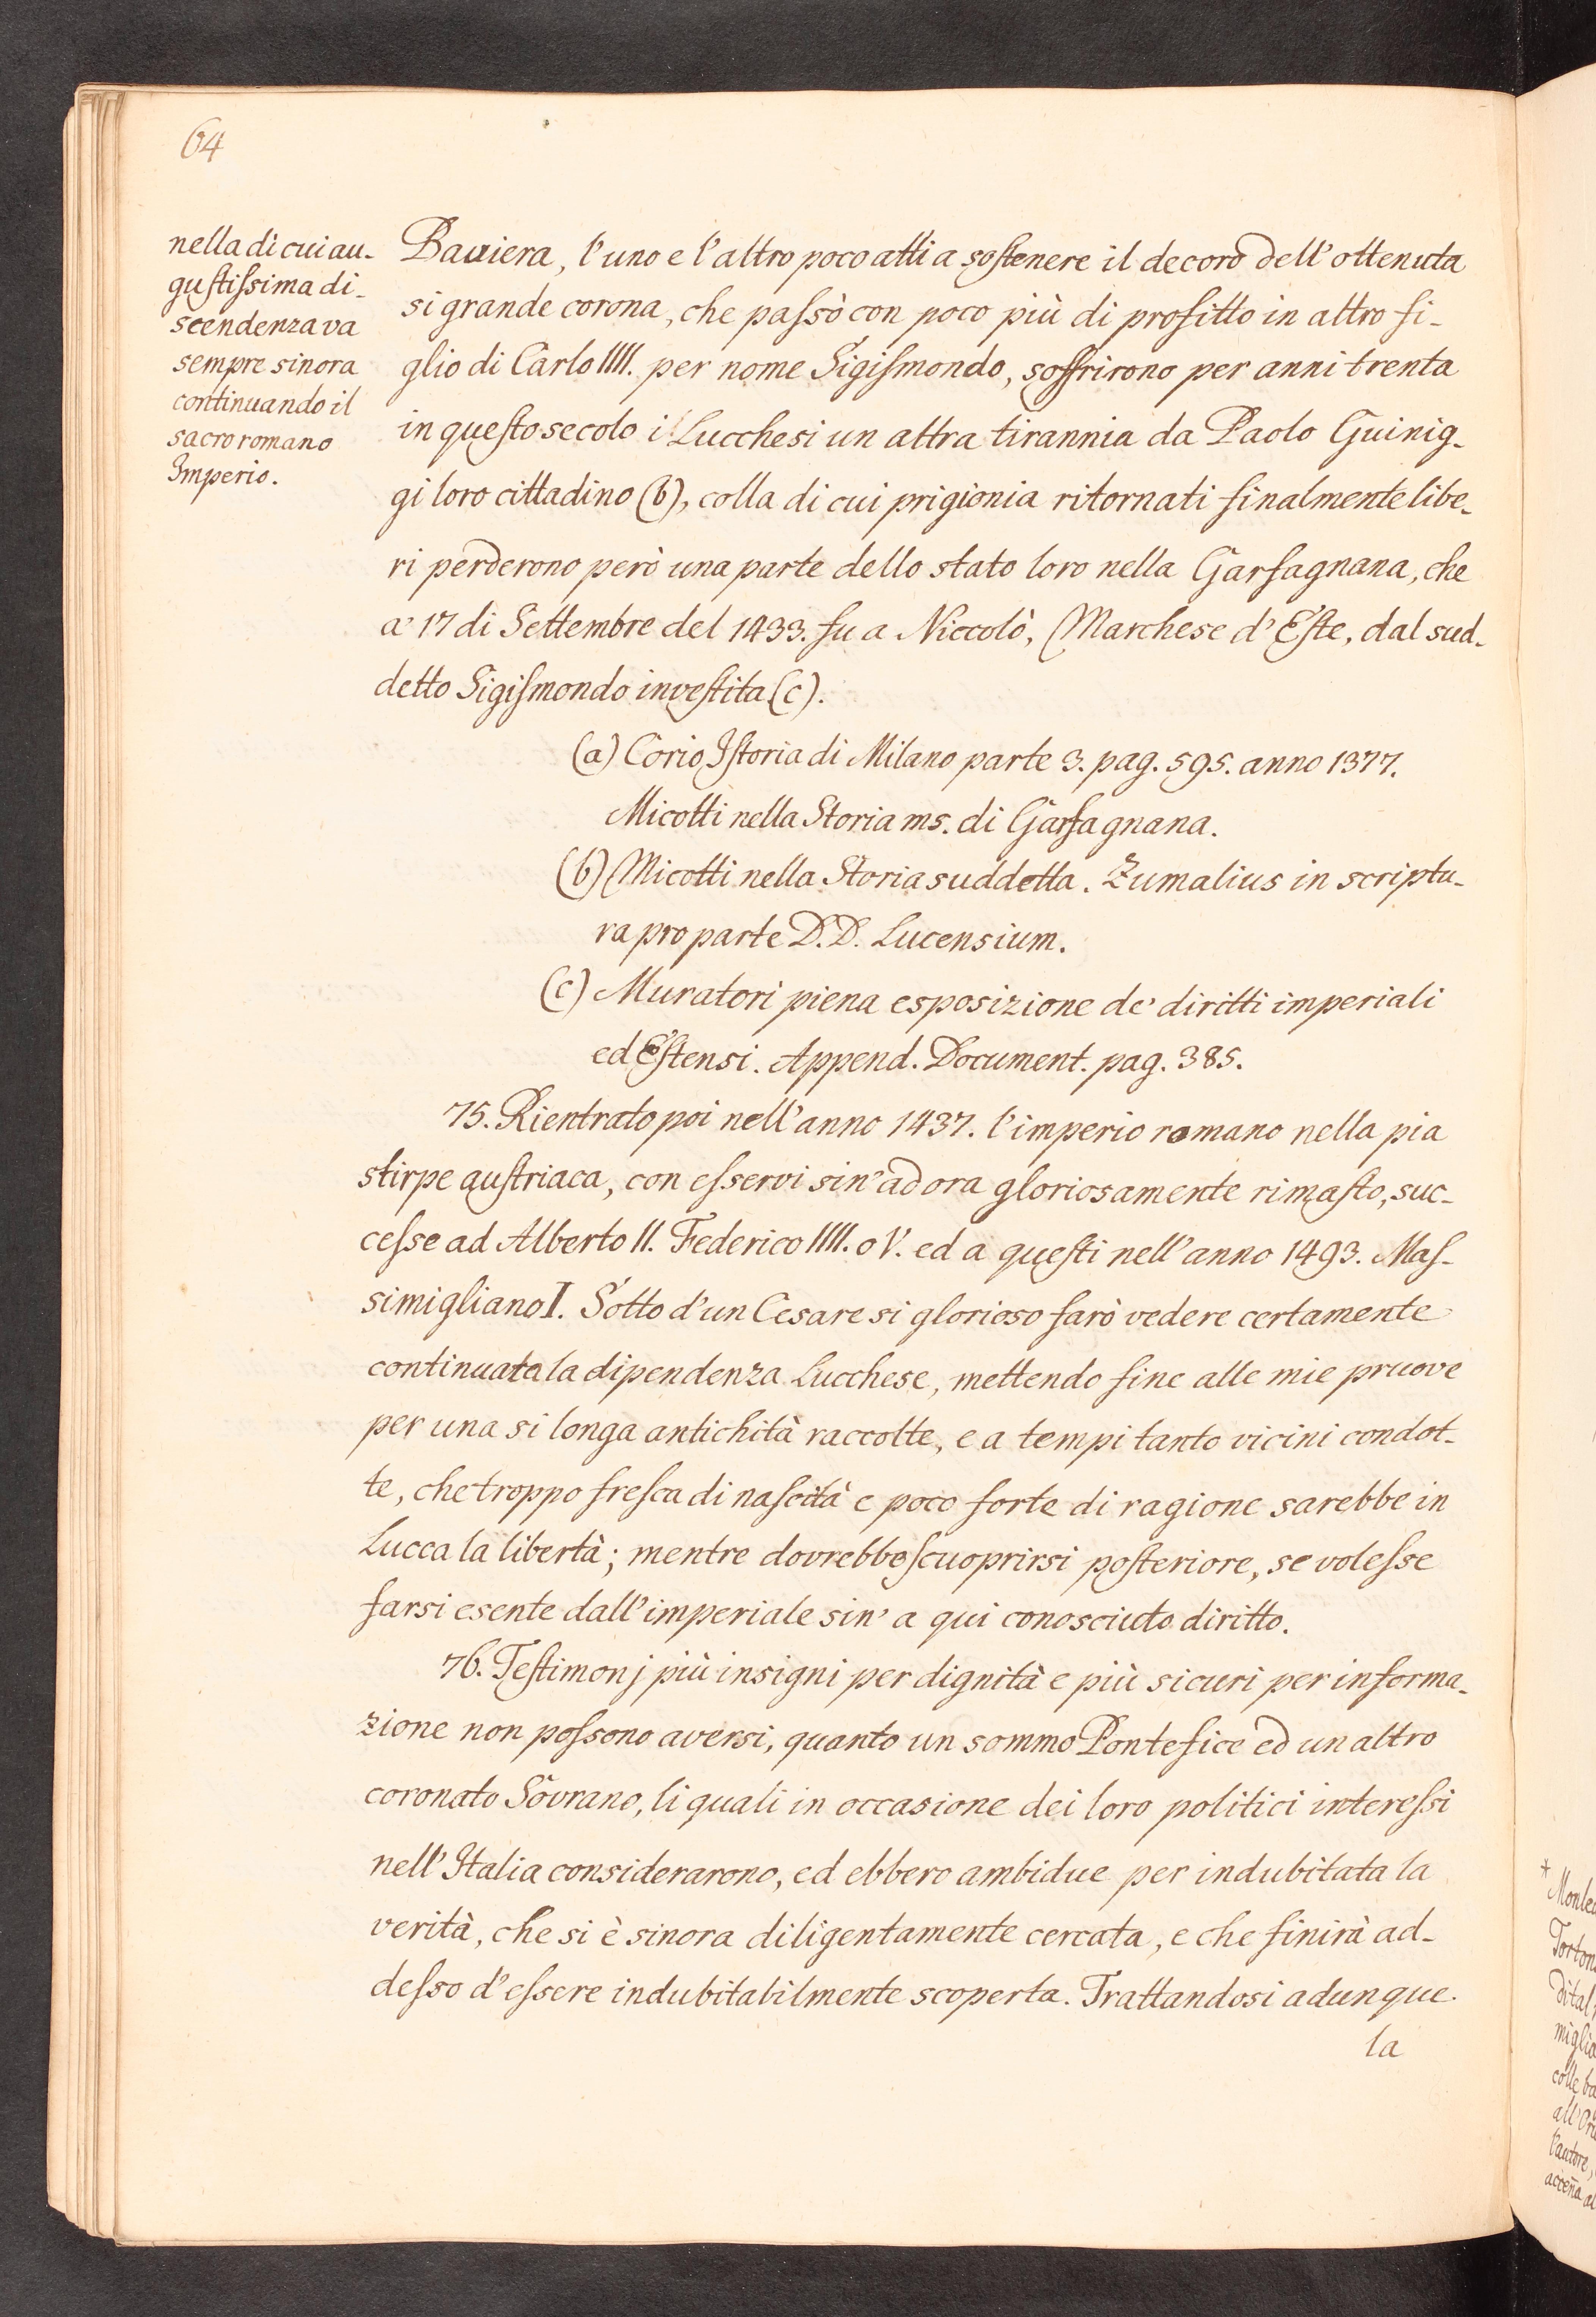 64
nella di cui au-
gustissima di-
scendenza va
sempre sinora
continuando il
sacro romano
Imperio.
Baviera, l'uno e l'altro poco atti a sostenere il decoro dell'ottenuta
si grande corona, che passò con poco più di profitto in altro fi-
glio di Carlo IIII. per nome Sigismondo, soffrirono per anni trenta
in questo secolo i Lucchesi un altra tirannia da Paolo Guinig-
gi loro cittadino (b), colla di cui prigionia ritornati finalmente libe-
ri perderono però una parte dello stato loro nella Garfagnana, che
a' 17 di Settembre del 1433. fu a Niccolò, Marchese d'Este, dal sud-
detto Sigismondo investita (c).
(a) Corio Istoria di Milano parte 3. pag. 595. anno 1377.
Micotti nella Storia ms. di Garfagnana.
(b) Micotti nella Storia suddetta. Zumalius in scriptu-
ra pro parte D.D. Lucensium.
(c) Muratori piena esposizione de' diritti imperiali
ed Estensi. Append. Document. pag. 385.
75. Rientrato poi nell'anno 1437. l'imperio romano nella pia
stirpe austriaca, con esservi sin' ad ora gloriosamente rimasto, suc-
cesse ad Alberto II. Federico IIII. o V. ed a questi nell'anno 1493. Mas-
simigliano I. Sotto d'un Cesare si glorioso farò vedere certamente
continuata la dipendenza Lucchese, mettendo fine alle mie pruove
per una si longa antichità raccolte, e a tempi tanto vicini condot-
te, che troppo fresca di nascità e poco forte di ragione sarebbe in
Lucca la libertà; mentre dovrebbe scuoprirsi posteriore, se volesse
farsi esente dall'imperiale sin' a qui conosciuto diritto.
76. Testimonj più insigni per dignità e più sicuri per informa-
zione non possono aversi, quanto un sommo Pontefice ed un altro
coronato Sovrano, li quali in occasione dei loro politici interessi
nell'Italia considerarono, ed ebbero ambidue per indubitata la
verità, che si è sinora diligentamente cercata, e che finirà ad-
desso d'essere indubitabilmente scoperta. Trattandosi adunque
la